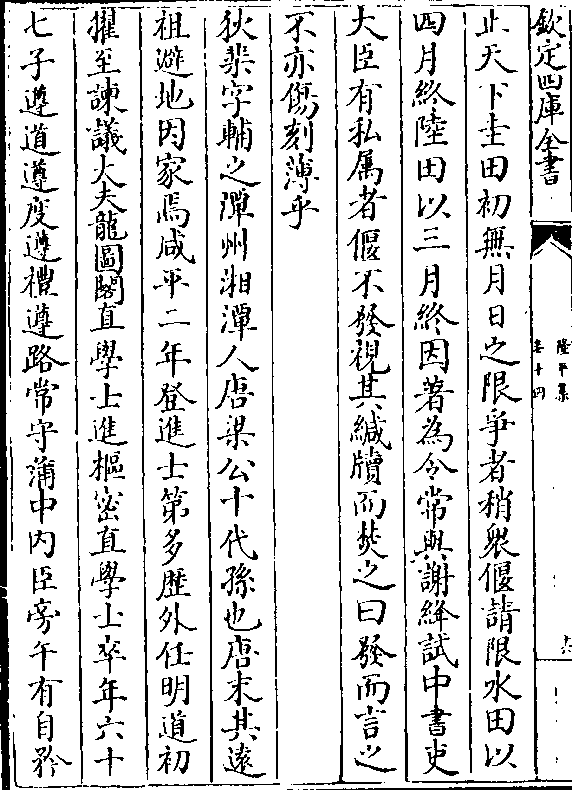 欽定四庫全書
隆平集
卷十四
止天下圭田初無月日之限爭者稍衆偃請限水田以
四月終陸田以三月終因著為令常與謝絳試中書吏
大臣有私属者偃不發視其緘牘而焚之曰發而言之
不亦傷刻薄乎
狄棐字輔之潭州湘潭人唐梁公十代孫也唐末其遠
祖避地因家焉咸平二年登進士第多歷外任明道初
擢至諫議大夫龍圖閣直學士進樞密直學士卒年六十
七子遵道遵度遵禮遵路常守蒲中内臣旁午有自矜